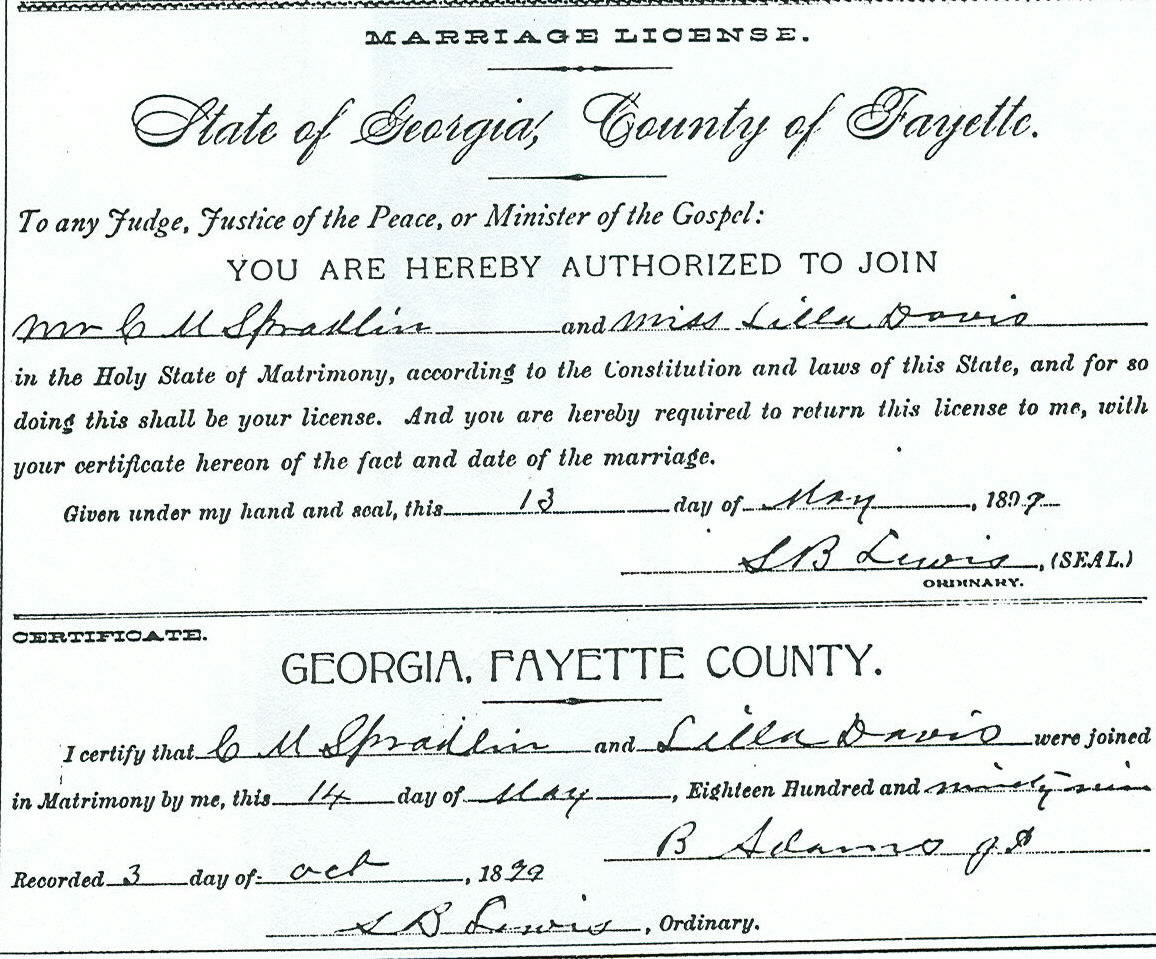 MARRIAGE LICENSE.
State of Georgia, County of Fayette.
To any Judge, Justice of the Peace, or Minister of the Gospel:
YOU ARE HEREBY AUTHORIZED TO JOIN
Mr C M Spradlin and Miss Lilla Davis
in the Holy State of Matrimony, according to the Constitution and laws of this State, and for so
doing this shall be your license. And you are hereby required to return this license to me, with
your certificate hereon of the fact and date of the marriage.
Given under my hand and seal, this 13 day of May, 1899
S B Lewis, (SEAL.)
ORDINARY.
CERTIFICATE.
GEORGIA, FAYETTE COUNTY.
I certify that C M Spradlin and Lilla Davis were joined
in Matrimony by me, this 14 day of May, Eighteen Hundred and ninety nine
B Adams J P
Recorded 3 day of Oct, 1899
S B Lewis, Ordinary.